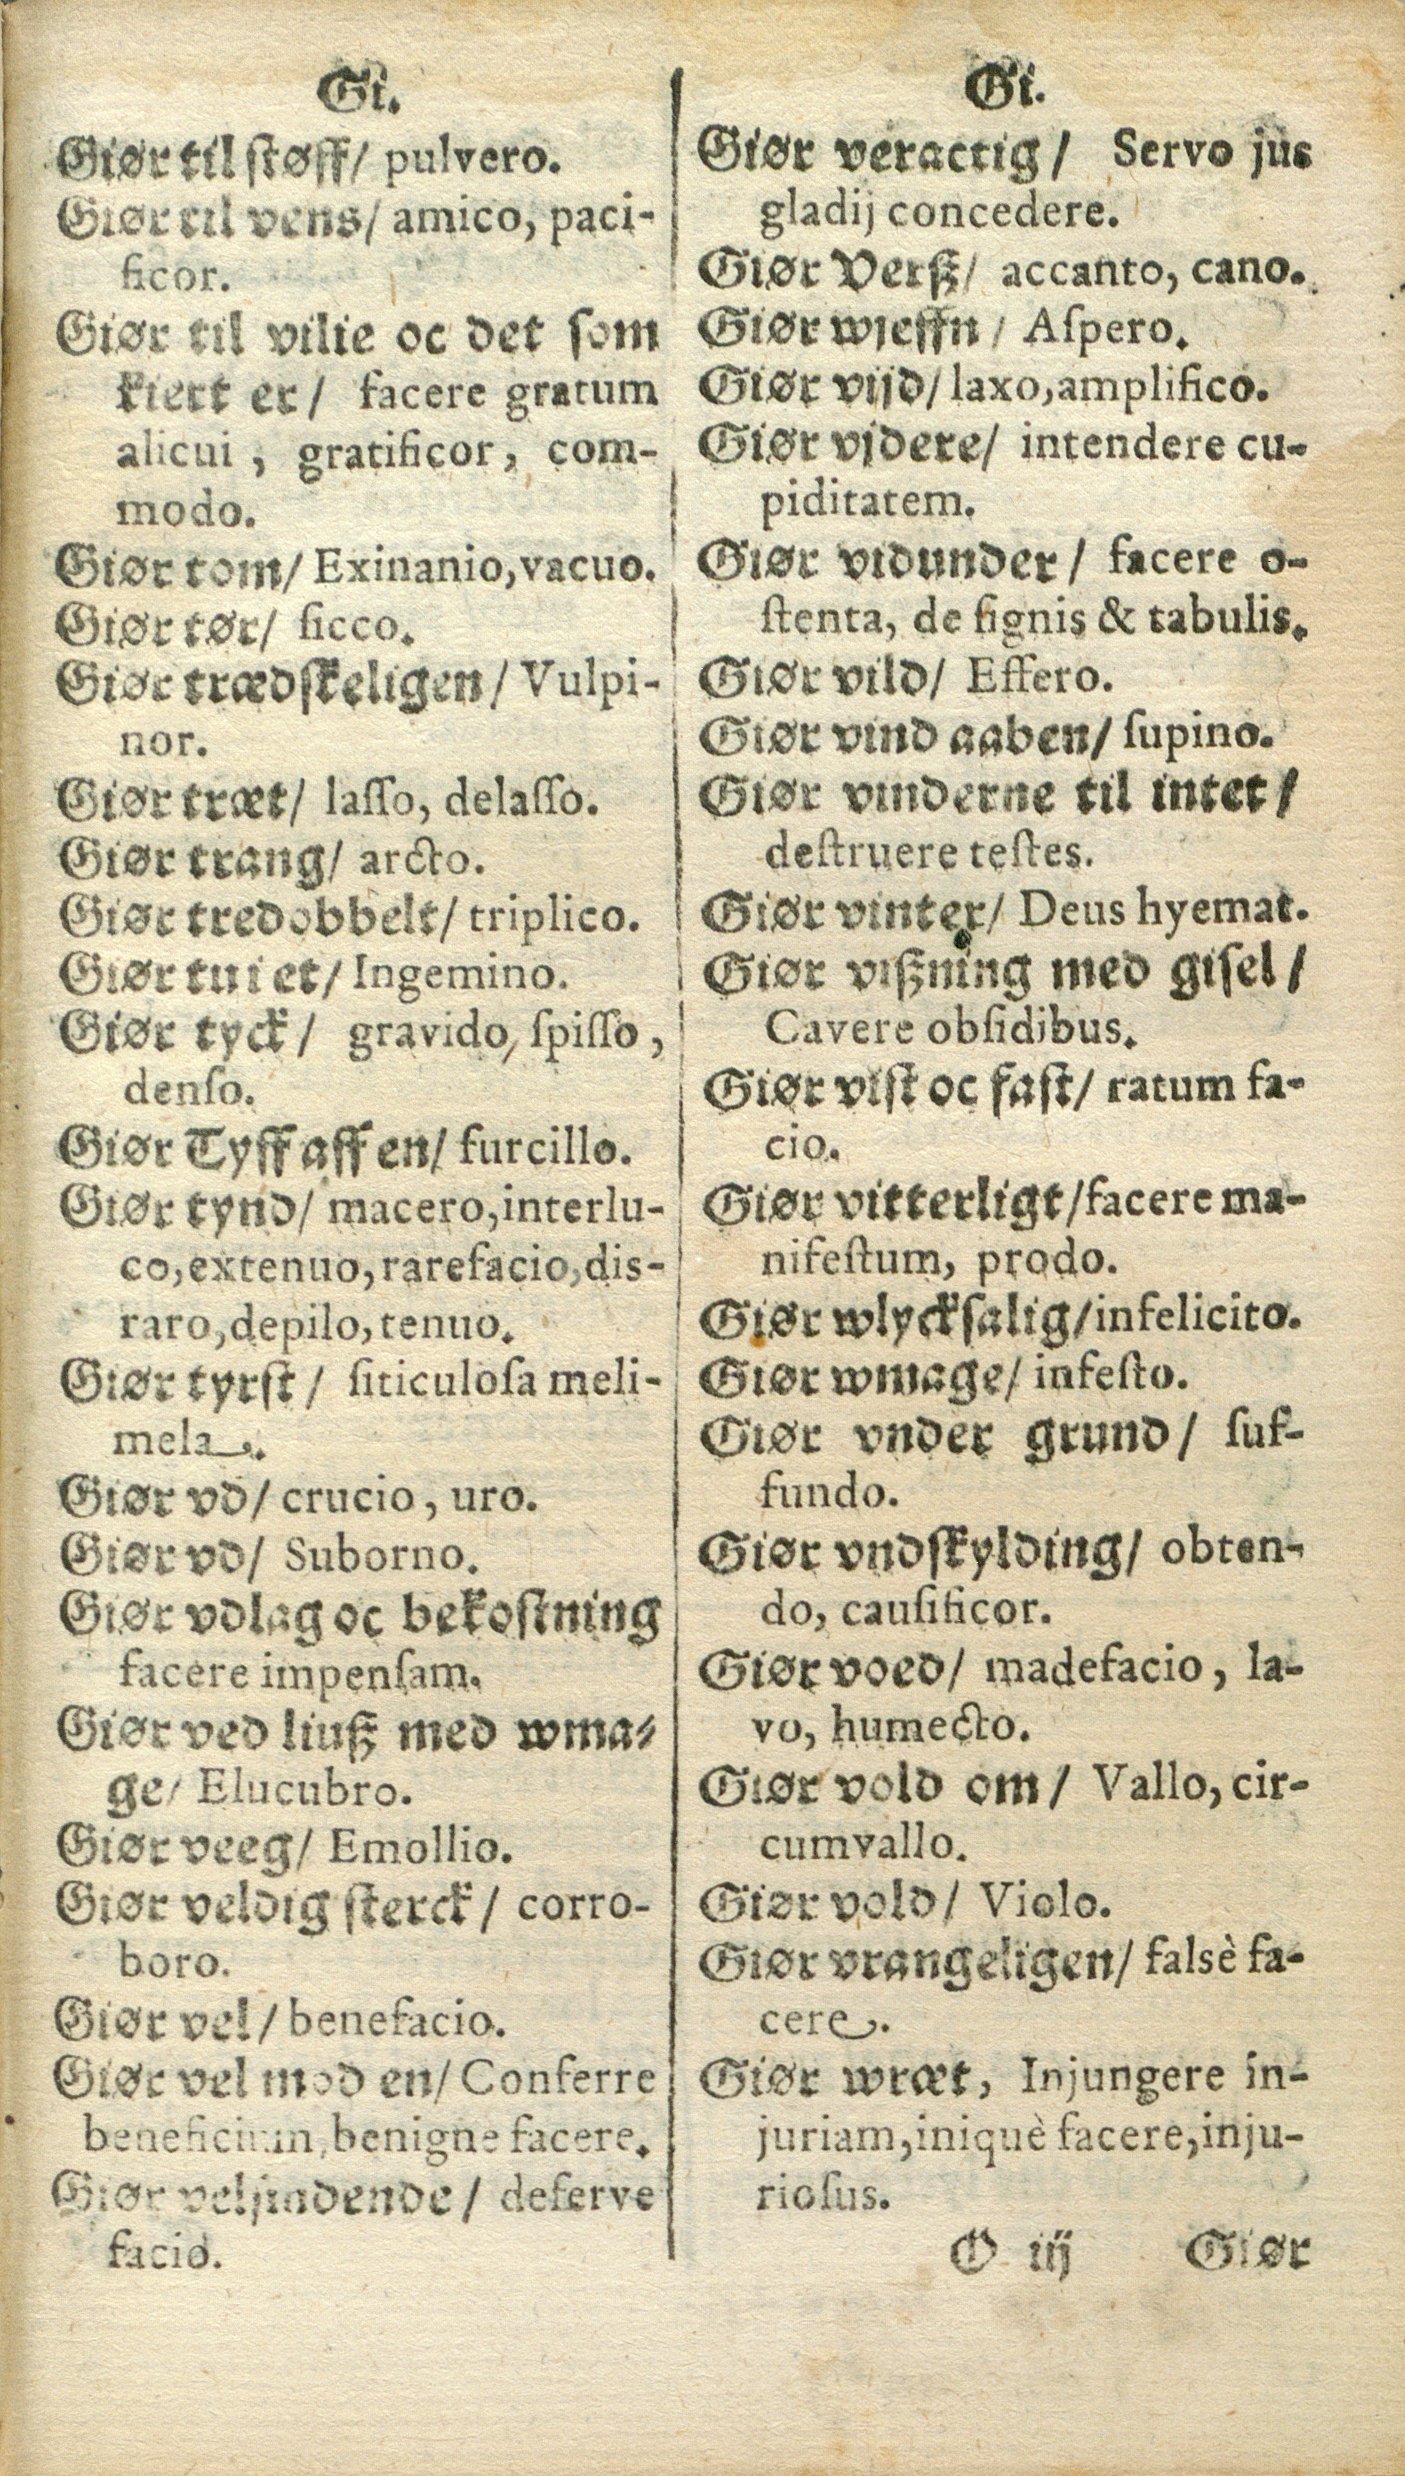 Gi.
Giør til støff/ pulvero.
Giør til vens/ amico, paci-
ficor.
Giør til vilie oc det som
kiert er/ facere gratum
alicui, gratificor, com-
modo.
Giør tom/ Exinanio, vacuo.
Giør tør/ ſicco.
Giør trædſkeligen/ Vulpi-
nor.
Giør træt/ laſſo, delaſſo.
Giør trang/ arcto.
Giør tredobbelt/ triplico.
Giør tuiet/ Ingemino.
Giør tyck/ gravido, ſpiſſo,
denſo.
Giør Tyff aff en/ furcillo.
Giør tynd/ macero, interlu-
co, extenuo, rarefacio, dis-
raro, depilo, tenuo.
Giør tyrſt/ ſiticuloſa meli-
mela.
Giør vd/ crucio, uro.
Giør vd/ Suborno.
Giør vdlag oc bekoſtning
facere impenſam.
Giør ved liuſz med wma-
ge/ Elucubro.
Giør veeg/ Emollio.
Giør veldig ſterck/ corro-
boro.
Giør vel/ benefacio.
Giør vel mod en/ Conferre
beneficium, benigne facere.
Giør velſiudende/ deferve
facio.
Gi.
Giør veractig/ Servo jus
gladij concedere.
Giør Verſz/ accanto, cano.
Giør wjeffn/ Aſpero.
Giør vijd/ laxo, amplifico.
Giør vjdere/ intendere cu-
piditatem.
Giør vidunder/ facere o-
ſtenta, de ſignis & tabulis.
Giør vild/ Effero.
Giør vind aaben/ ſupino.
Giør vinderne til intet/
deſtruere teſtes.
Giør vinter/ Deus hyemat.
Giør viſzning med giſel/
Cavere obſidibus.
Giør viſt oc faſt/ ratum fa-
cio.
Giør vitterligt/ facere ma-
nifeſtum, prodo.
Giør wlyckſalig/ infelicito.
Giør wmage/ infeſto.
Giør vnder grund/ ſuf-
fundo.
Giør vndſkylding/ obten-
do, cauſificor.
Giør voed/ madefacio, la-
vo, humecto.
Giør vold om/ Vallo, cir-
cumvallo.
Giør vold/ Violo.
Giør vrangeligen/ falsè fa-
cere.
Giør wræt, Injungere in-
juriam, iniquè facere, inju-
rioſus.
O iij Giør